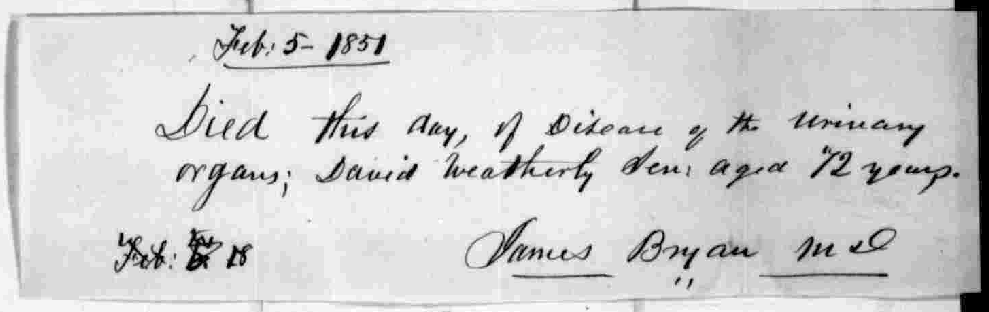 Feb: 5 - 1851
Died this day, of Disease of the Urinary
organs; David Weatherly Sen: aged 72 years.
Feb: 18
James Bryan M D